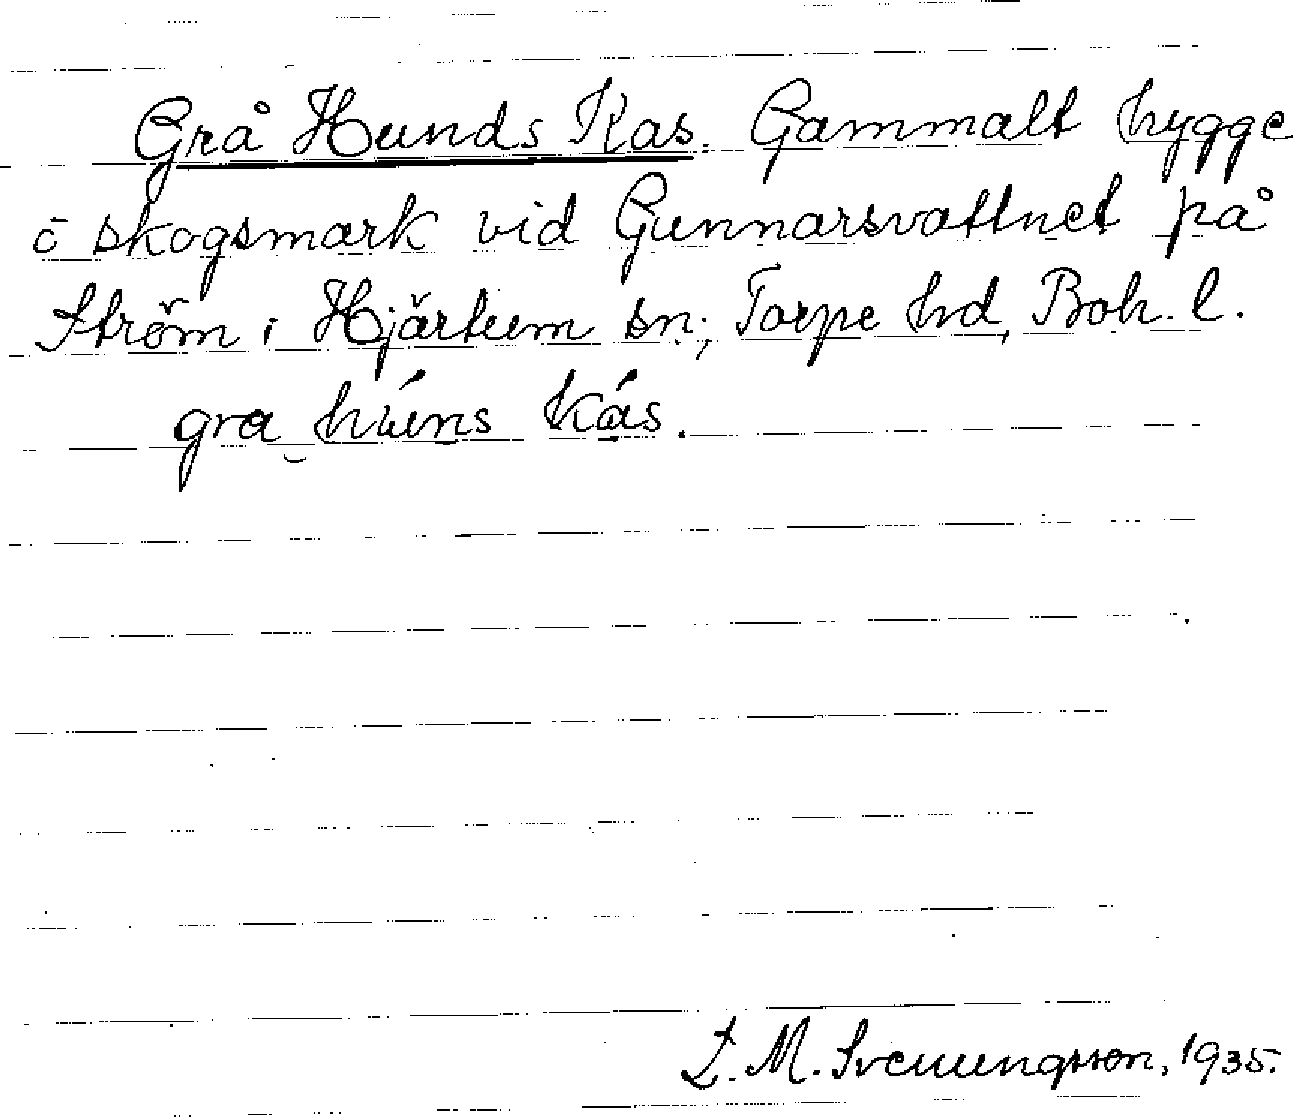 Grå Hunds Kas. Gammalt hygge
ō skogsmark vid Gunnarsvattnet på
Ström i Hjärtum sn; Torpe hd, Boh. l.
gra húns kás.
L. M. Svenungsson, 1935.